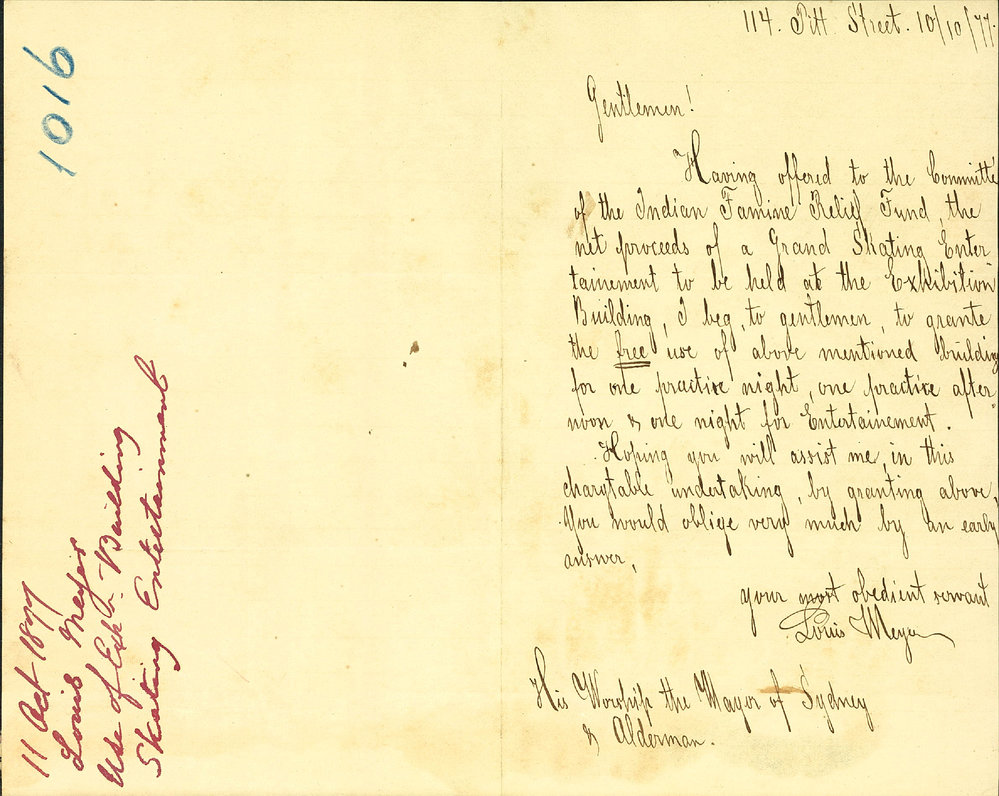 1016
11 Oct 1877
Louis Meyer
Use of Exhn. Building
Skating Entertainment
114. Pitt Street. 10/10/77.
Gentlemen!
Having offered to the Committe
of the Indian Famine Relief Fund, the
net proceeds of a Grand Skating Enter
tainement to be held at the Exhibition
Building, I beg, to gentlemen, to grante
the free use of above mentioned building
for one practice night, one practice after-
noon & one night for Entertainement.
Hoping you will assist me, in this
charytable undertaking, by granting above,
You would oblige very much by an early
answer,
your most obedient servant
Louis Meyer
His Worship the Mayor of Sydney
& Alderman.